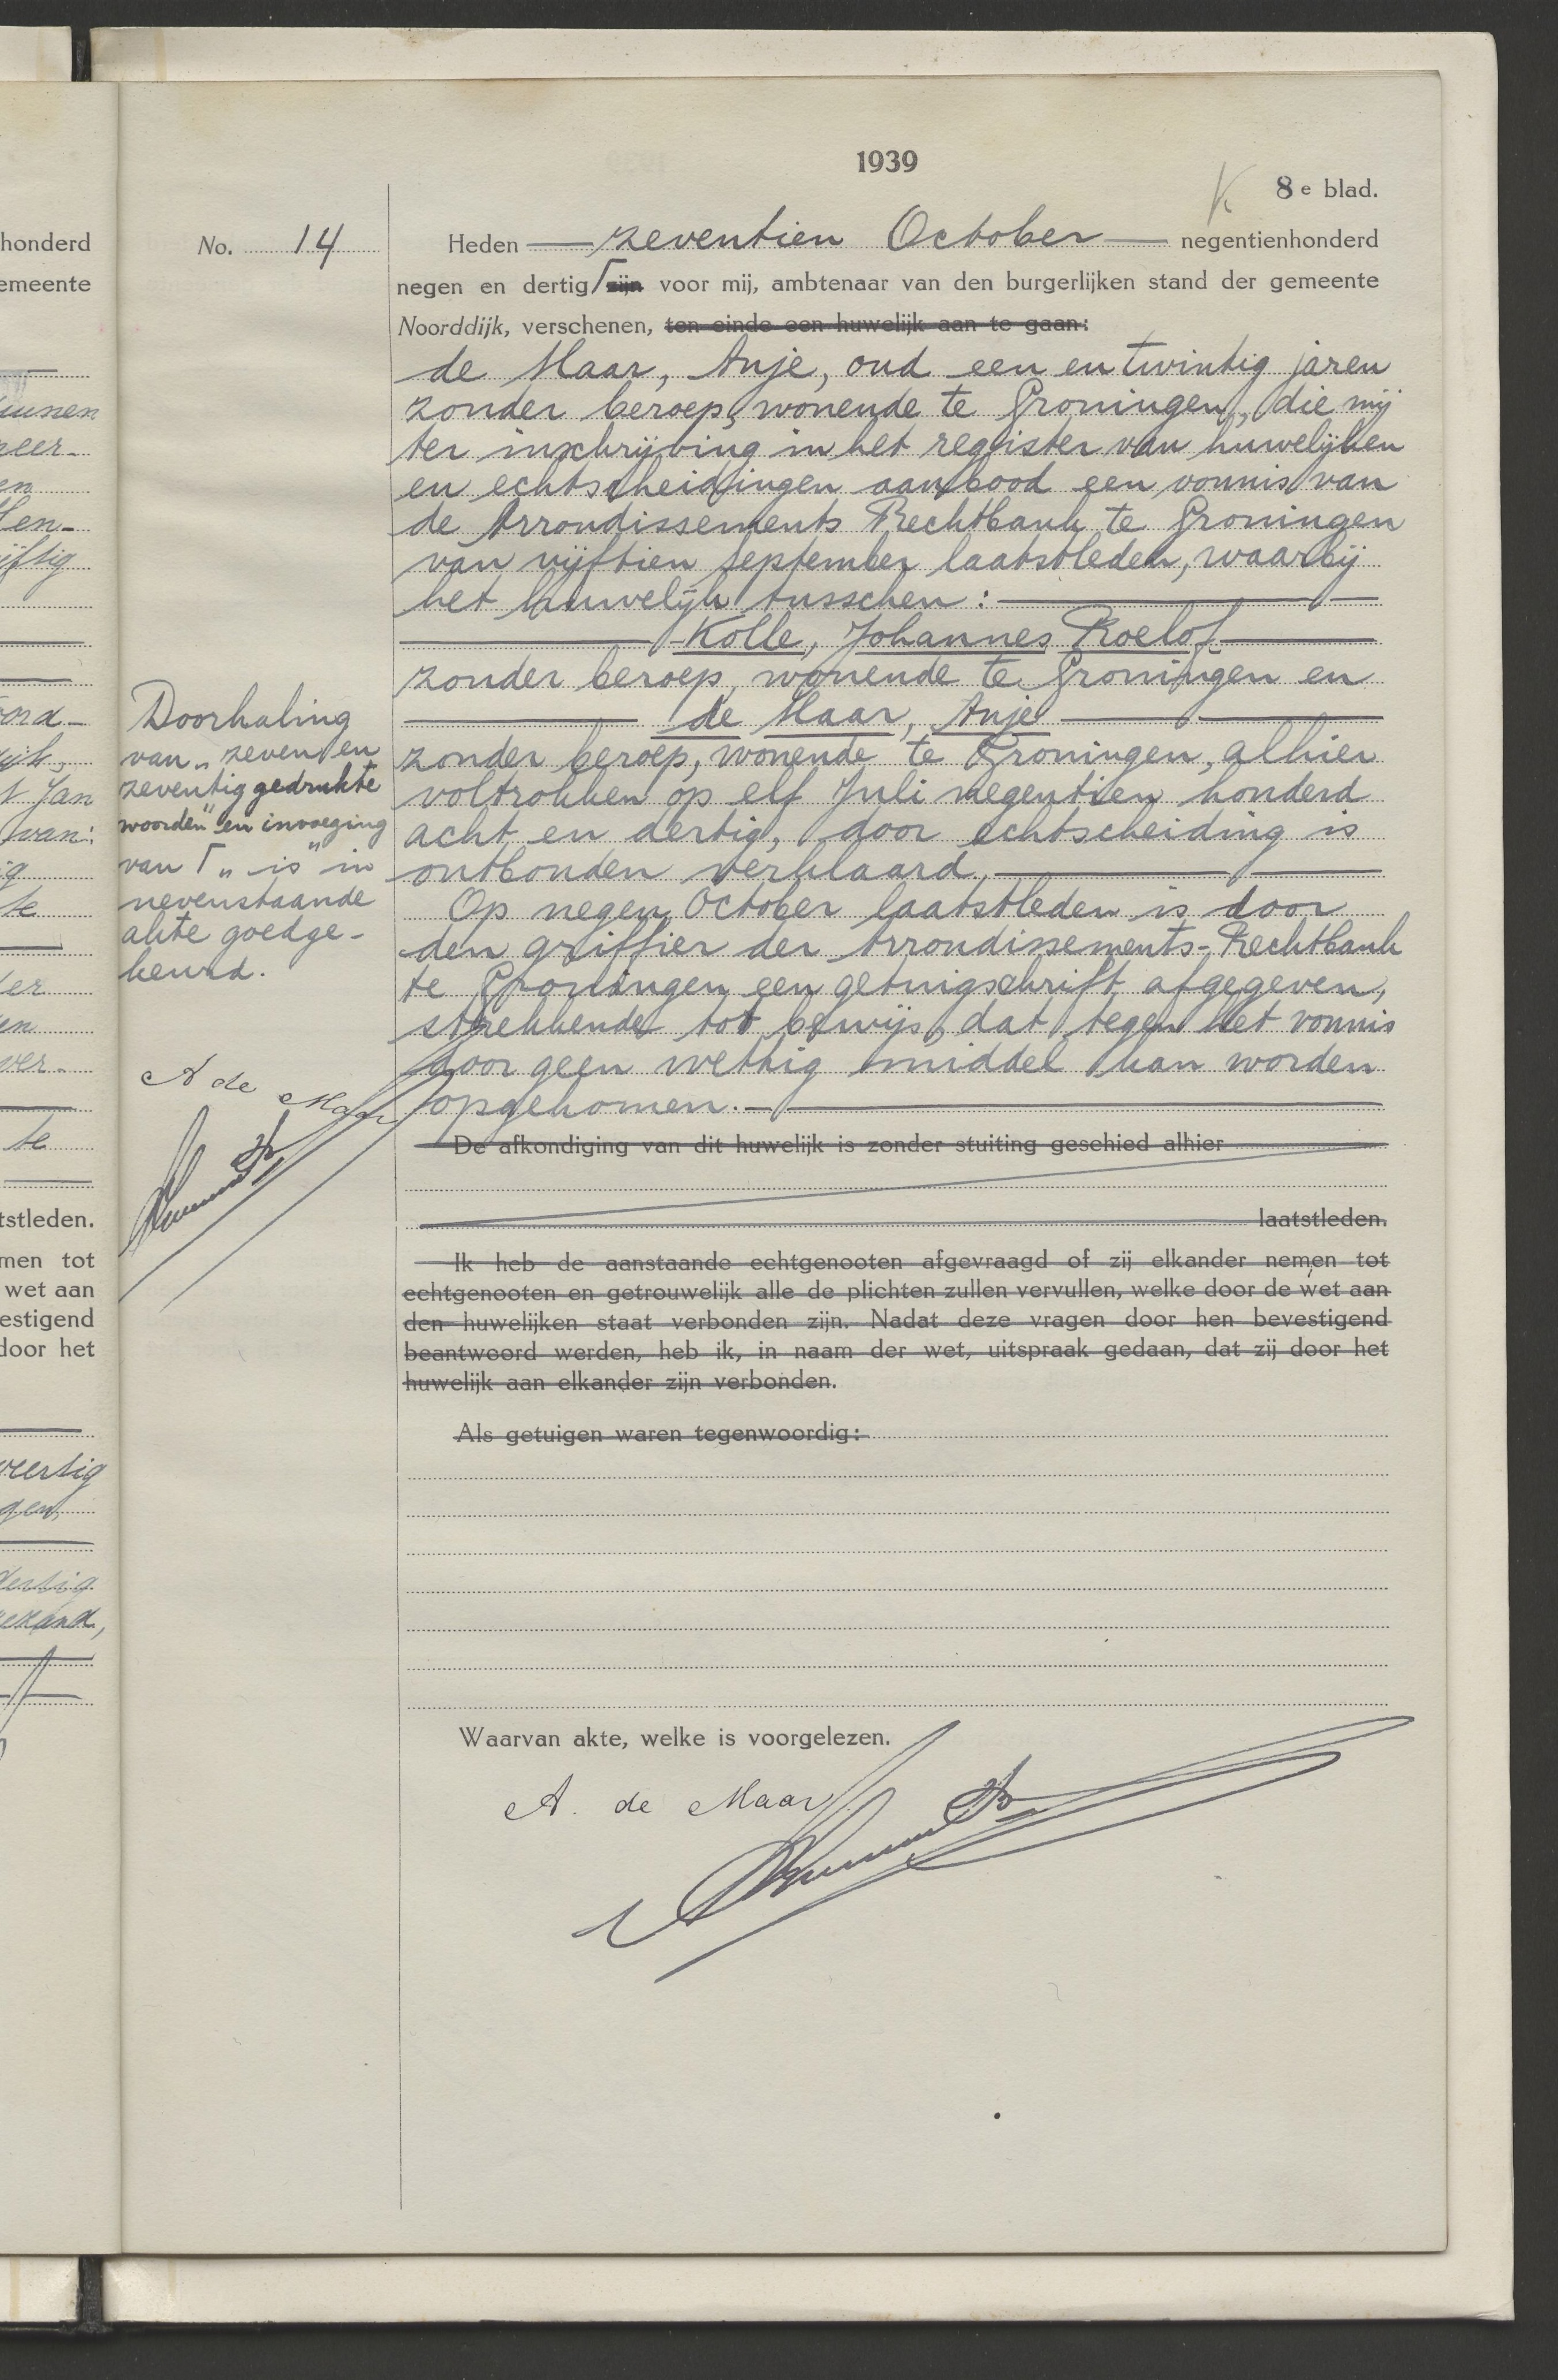 1939
8e blad.
No. 14
Heden — zeventien October — negentienhonderd
negen en dertig ⌈ zijn voor mij, ambtenaar van den burgerlijken stand der gemeente
Noorddijk, verschenen, ten einde een huwelijk aan te gaan:
de Maar, Anje, oud een en twintig jaren
zonder beroep, wonende te Groningen, die mij
ter inschrijving in het register van huwelijken
en echtscheidingen aanbood een vonnis van
de Arrondissements Rechtbank te Groningen
van vijftien September laatstleden, waarbij
het huwelijk tusschen: —
— Kolle, Johannes Roelof —
zonder beroep, wonende te Groningen en
— de Maar, Anje —
zonder beroep, wonende te Groningen, alhier
voltrokken op elf Juli negentien honderd
acht en dertig, door echtscheiding is
ontbonden verklaard. —
Op negen October laatstleden is door
den griffier der Arrondissements-Rechtbank
te Groningen een getuigschrift afgegeven,
strekkende tot bewijs, dat tegen het vonnis
door geen wettig middel kan worden
opgekomen. —
De afkondiging van dit huwelijk is zonder stuiting geschied alhier
laatstleden.
Ik heb de aanstaande echtgenooten afgevraagd of zij elkander nemen tot
echtgenooten en getrouwelijk alle de plichten zullen vervullen, welke door de wet aan
den huwelijken staat verbonden zijn. Nadat deze vragen door hen bevestigend
beantwoord werden, heb ik, in naam der wet, uitspraak gedaan, dat zij door het
huwelijk aan elkander zijn verbonden.
Als getuigen waren tegenwoordig:
Waarvan akte, welke is voorgelezen.
A. de Maar
Doorhaling
van „zeven en
zeventig gedrukte
woorden" en invoeging
van ⌈ „is" in
nevenstaande
akte goedge-
keurd.
A de Maar
honderd
emeente
neer-
en
ijftig
t Jan
van:
te
ver-
te
tstleden.
men tot
wet aan
estigend
door het